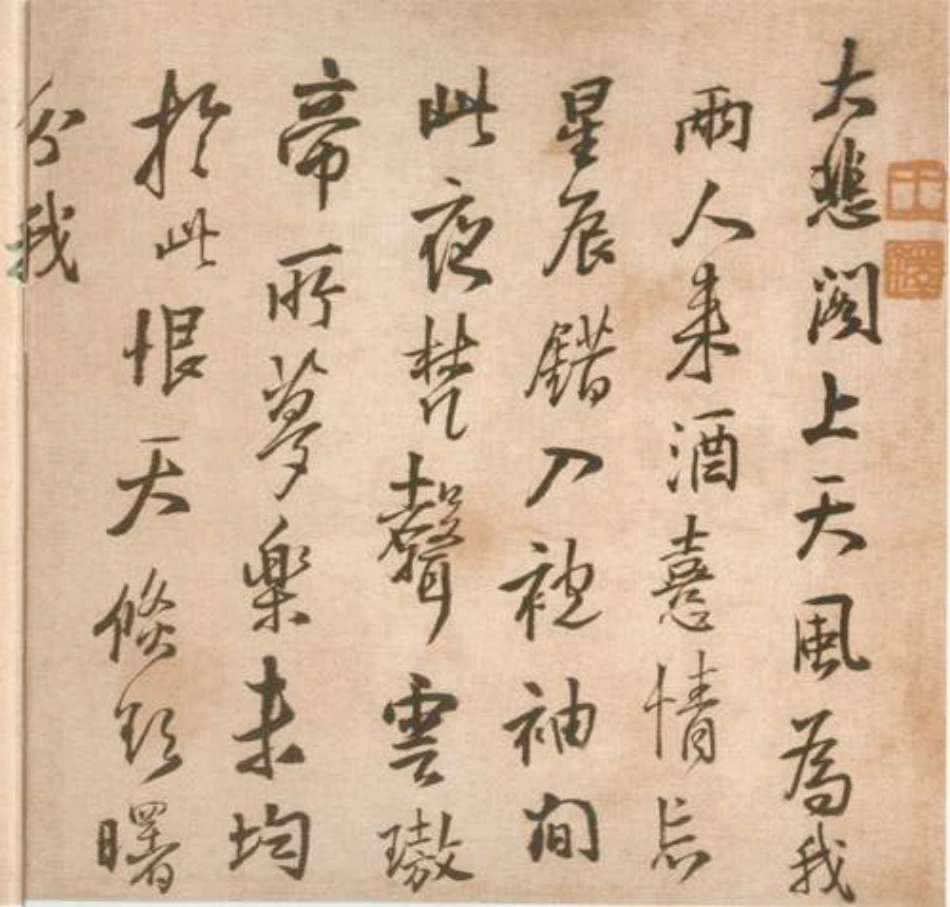 王鐸
大悲閣上天風為我
兩人来酒憙情忘
星辰錯入袍袖間
此夜梵聲雲璈
帝所夢樂未均
於此恨天倐欲曙
分我